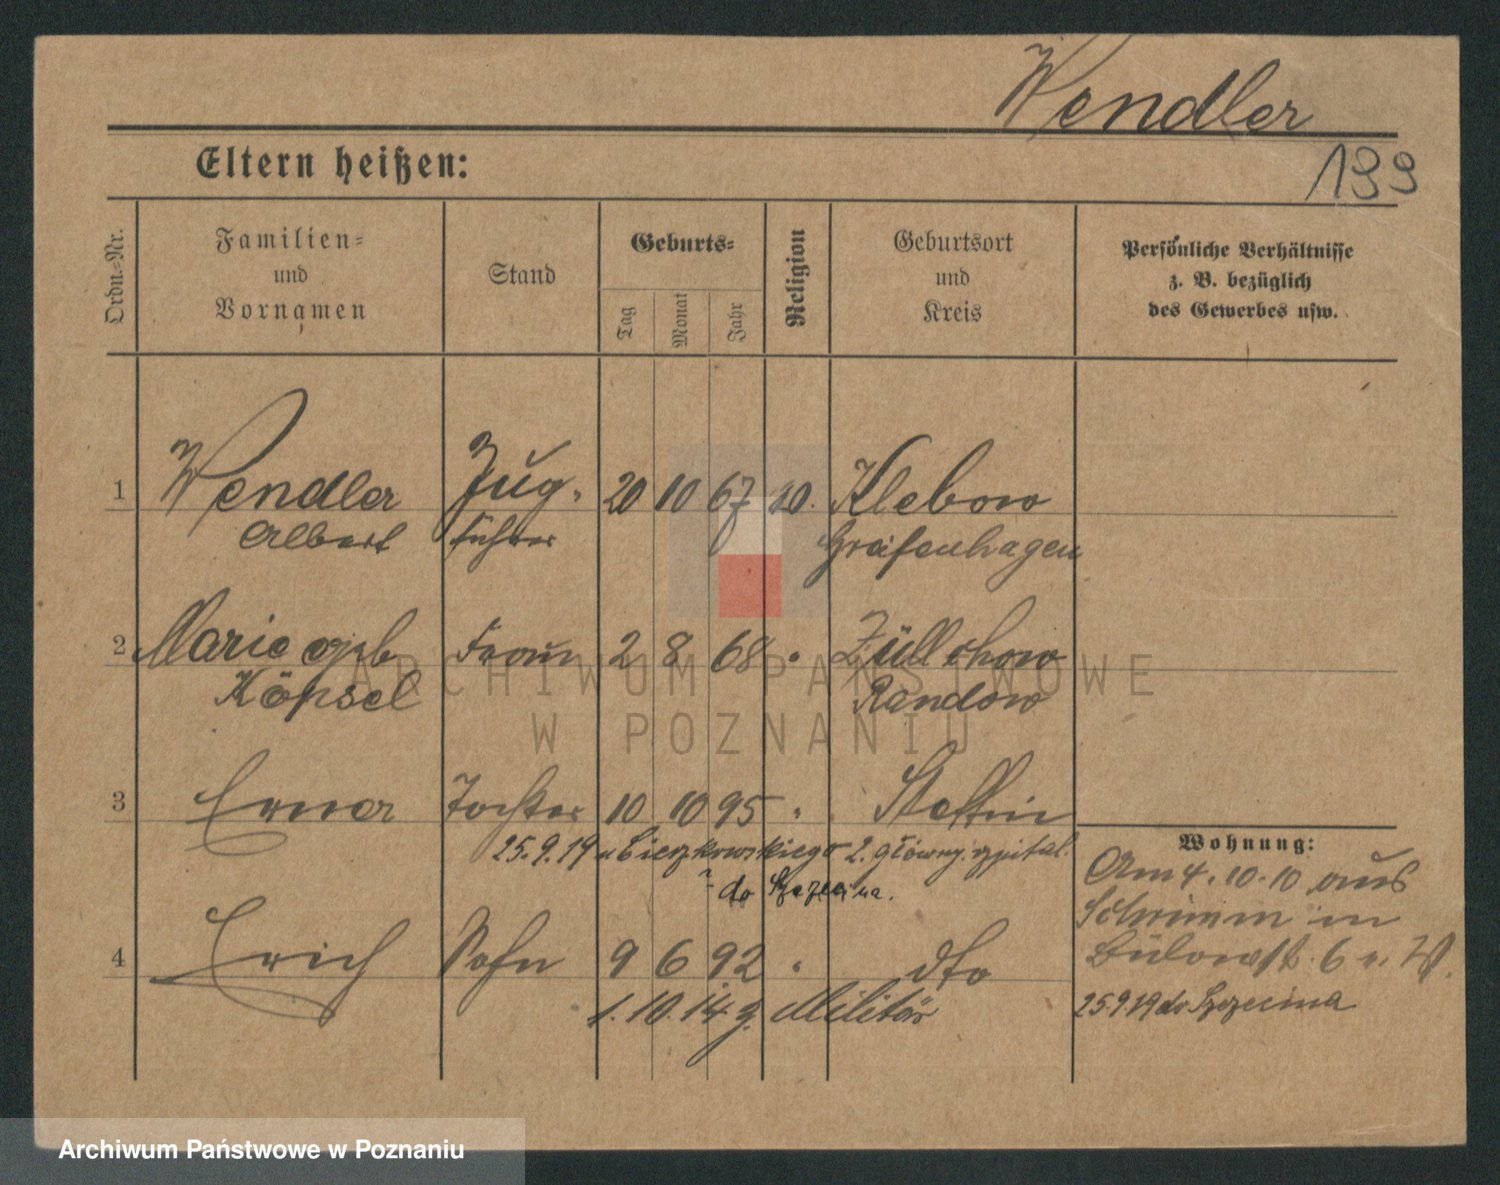 Wendler
199
Eltern heißen:
Ordn.=Nr.
Familien=
und
Vornamen
Stand
Geburts=
Tag
Monat
Jahr
Religion
Geburtsort
und
Kreis
Persönliche Verhältnisse
z. B. bezüglich
des Gewerbes usw.
1 Wendler Zug- 20 10 67 Klebow
Albert führer Greifenhagen
2 Marie geb Frau 2 8 68 " Züllchow
Köpsel Randow
3 Erna Tochter 10 10 95 " Stettin
25.9.19 2. główny szpital.
do Szczecina.
4 Erich Sohn 9 6 92 " dto
1.10.14 z. Militär
Wohnung:
Am 4.10.10 aus
Schrimm in
Bülowst. 6 v. W.
25.9.19 do Szczecina
ARCHIWUM PAŃSTWOWE
W POZNANIU
Archiwum Państwowe w Poznaniu